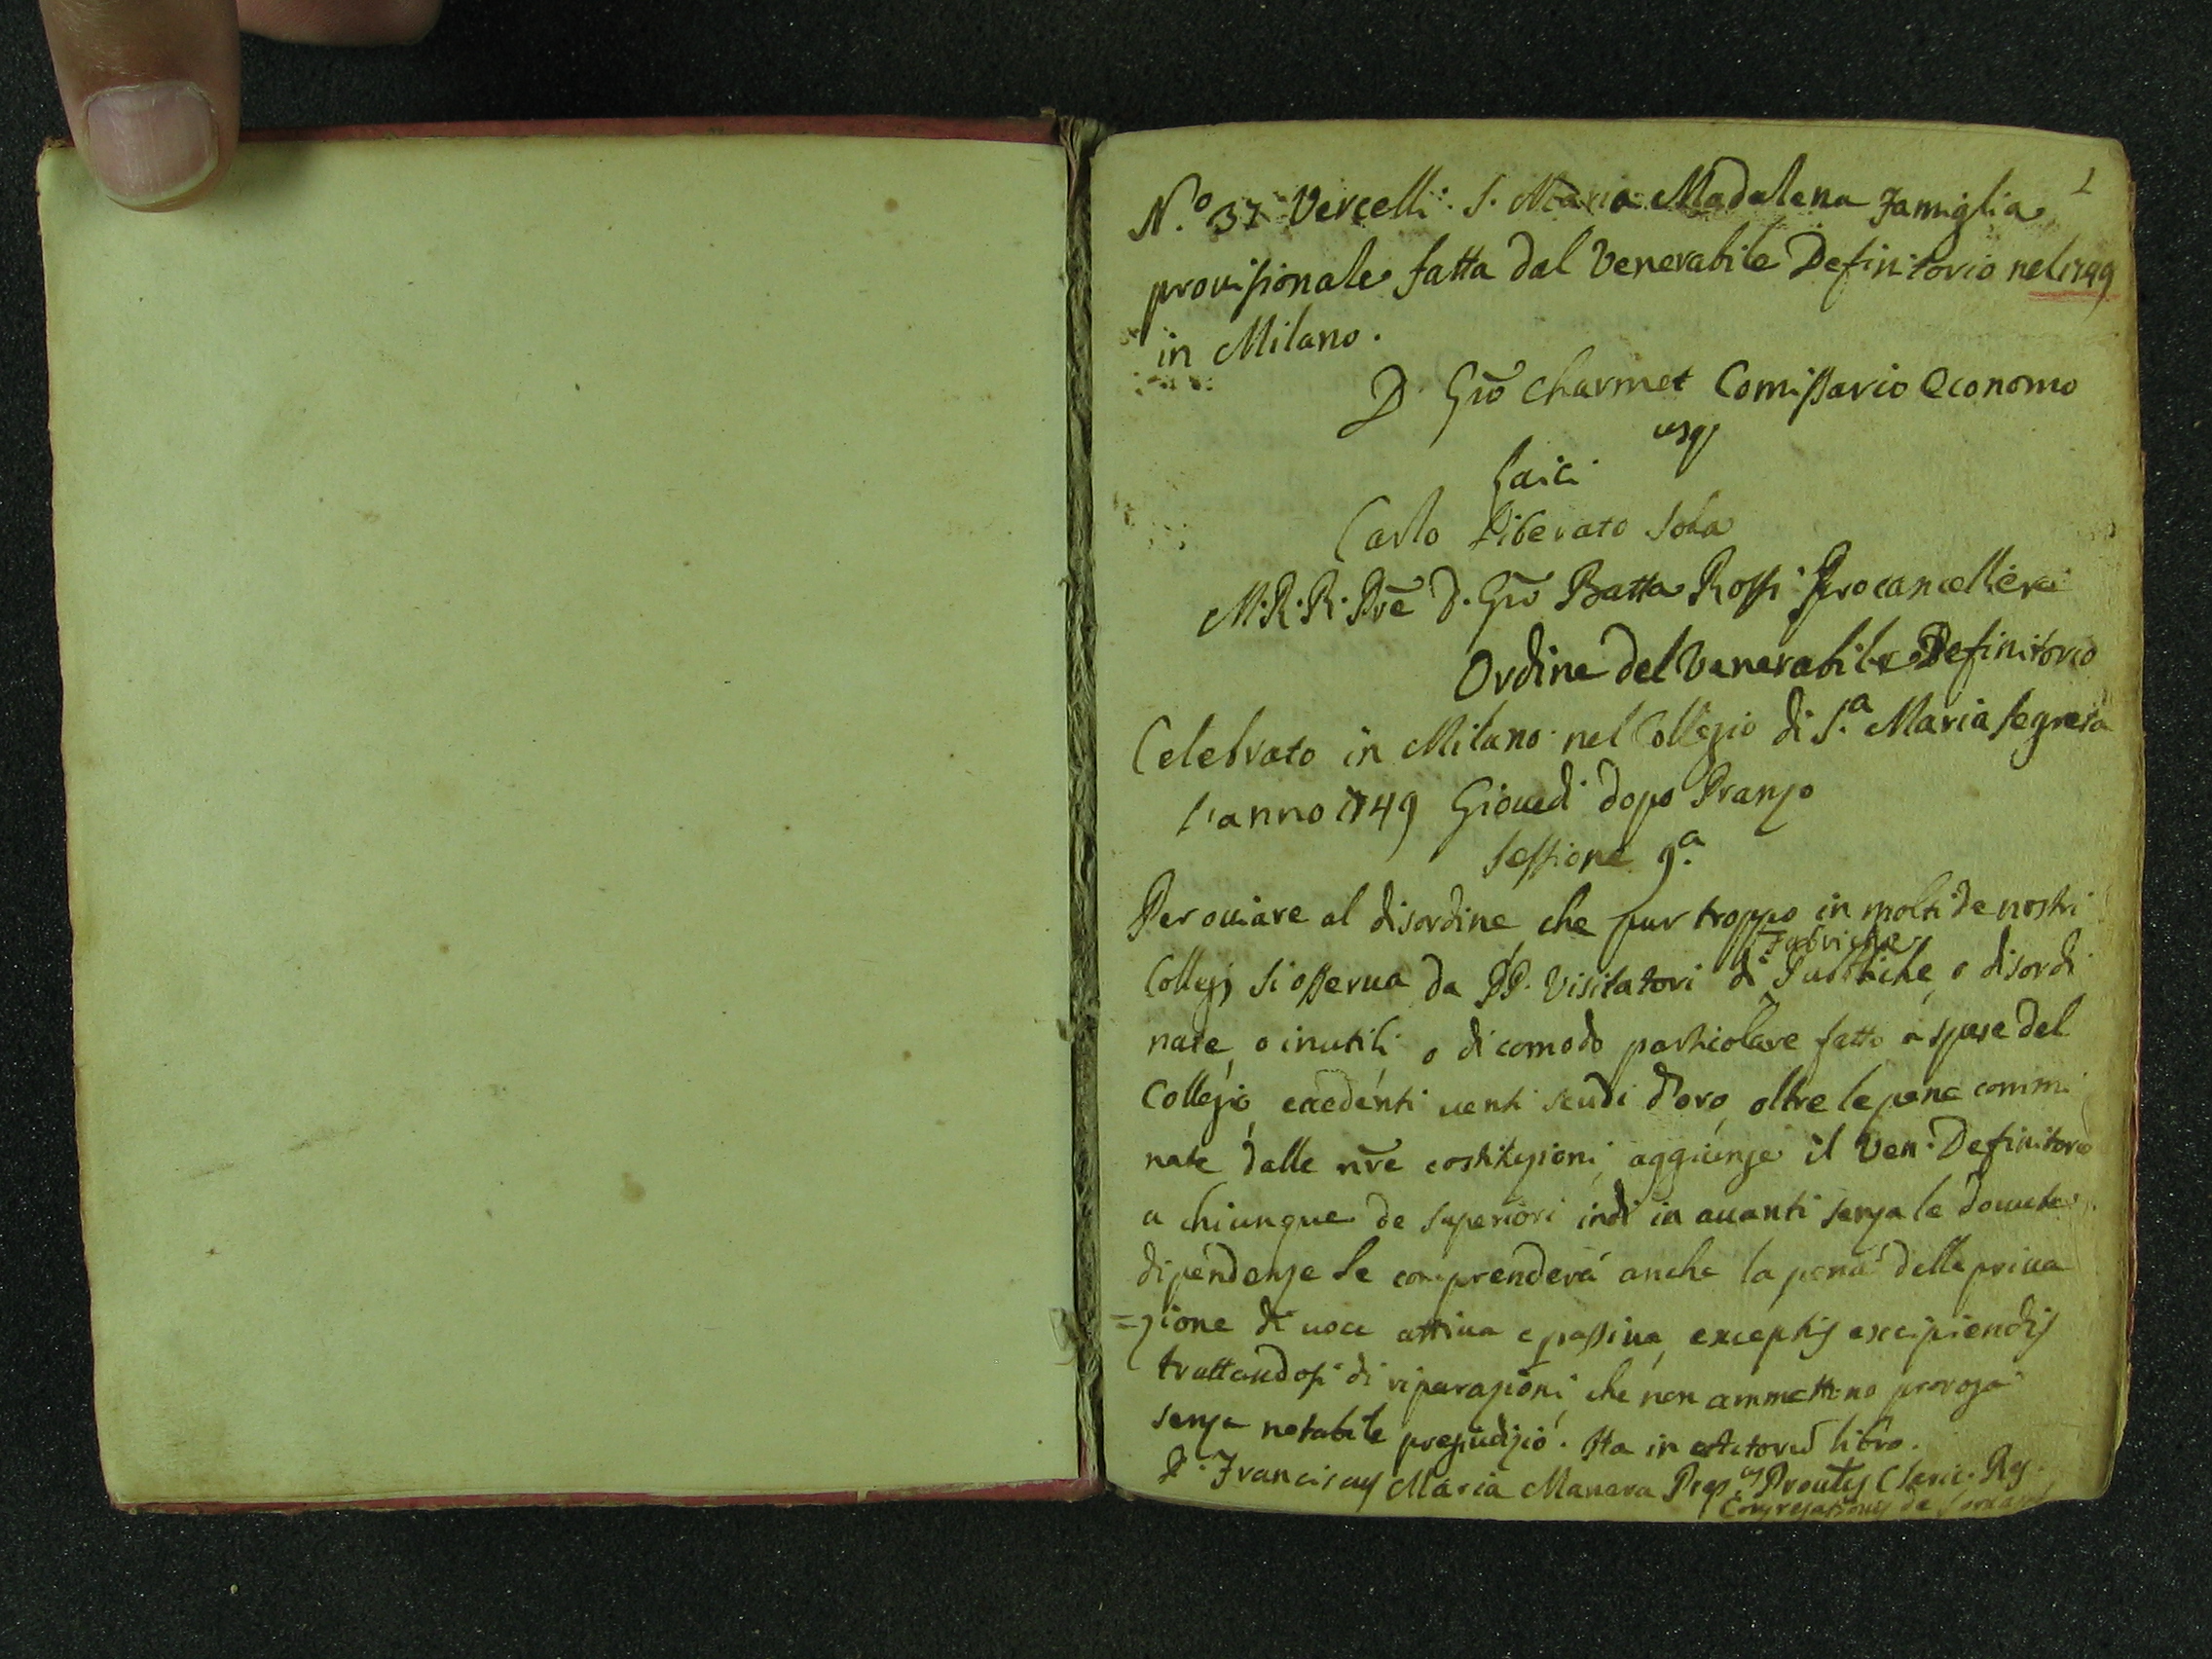 1
N.o 37 Vercelli. S. Maria Madalena Famiglia
provisionale fatta dal Venerabile Definitorio nel 1749
in Milano.
D. Gio Charmet Comissario Economo
usq
Laici
Carlo Liberato Sola
M. R. R. Pre D. Gio Batta Rossi Procancelliere
Ordine del Venerabile Definitorio
Celebrato in Milano nel Collegio di S.a Maria Segreta
l'anno 1749 Giovedi dopo Pranzo
Sessione 9.a
Per oviare al disordine che pur troppo in molti de nostri
Fabriche
Collegj si osserva da PP. Visitatori di Publiche, o disordi
nate, o inutili, o di comodo particolare fatte a spese del
Collegio, eccedenti venti scudi d'oro, oltre le pene commi
nate dalle nre costituzioni, aggiunge il Ven. Definitorio
a chiunque de superiori indi in avanti senza le dovute
dipendenze le comprenderá anche la pena della priva
=zione di voce attiva e passiva, exceptis excipiendis
trattandosi di riparazioni, che non ammettono proroga
senza notabile pregiudizio. Ita in libro.
D. Franciscus Maria Manara Prep.us Provlis Cleric. Reg.
Congregationis de Somascha